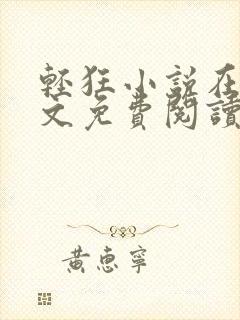 輕狂小說在
文免費閱讀
黃惠寧